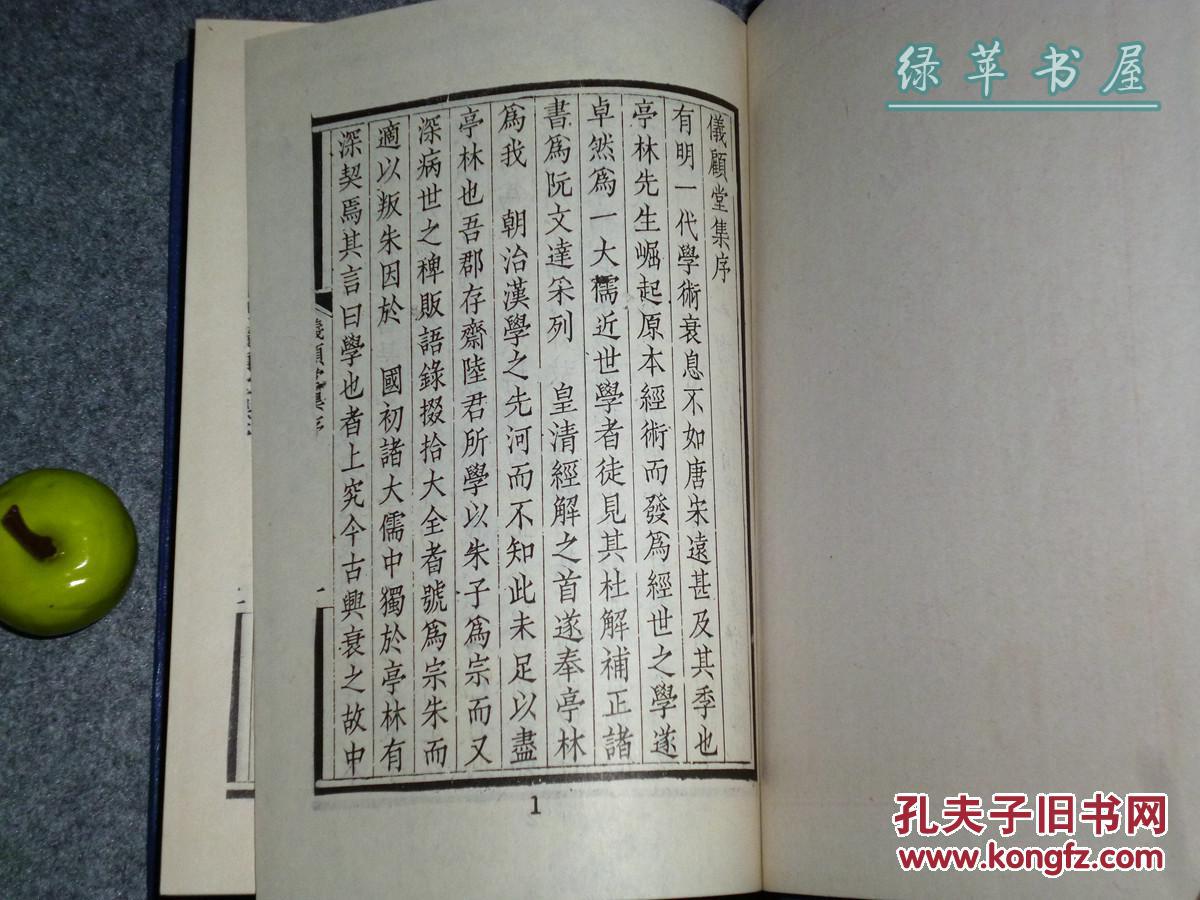 绿苹书屋
儀顧堂集序
有明一代學術衰息不如唐宋遠甚及其季也
亭林先生崛起原本經術而發爲經世之學遂
卓然爲一大儒近世學者徒見其杜解補正諸
書爲阮文達采列　皇清經解之首遂奉亭林
爲我　朝治漢學之先河而不知此未足以盡
亭林也吾郡存齋陸君所學以朱子爲宗而又
深病世之稗販語錄掇拾大全者號爲宗朱而
適以叛朱因於　國初諸大儒中獨於亭林有
深契焉其言曰學也者上究今古興衰之故中
1
孔夫子旧书网
www.kongfz.com